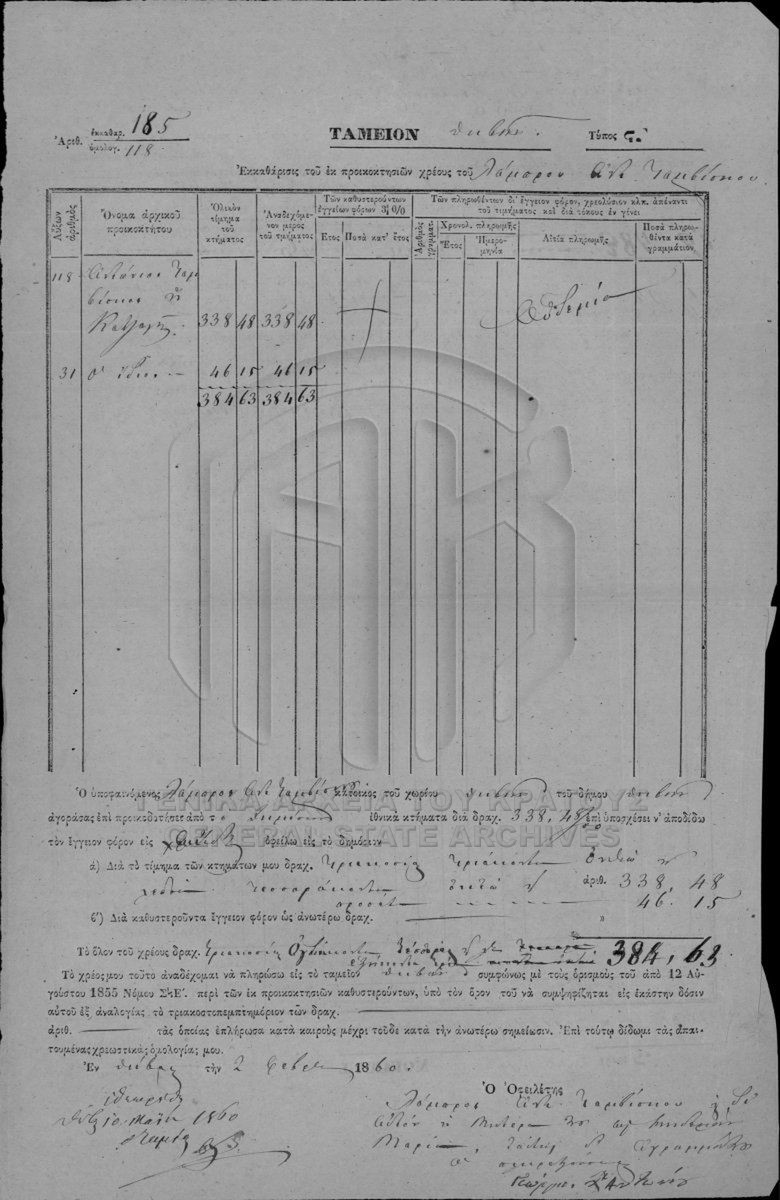 Ἀριθ. ἐκκαθαρ. 185
ὁμολογ. 118
ΤΑΜΕΙΟΝ Θηβῶν.
Τύπος Ϛ.
Ἐκκαθάρισις τοῦ ἐκ προικοκτησιῶν χρέους τοῦ Λάμπρου Ἀντ. Ταμβίσκου
Αὔξων ἀριθμὸς
Ὄνομα ἀρχικοῦ προικοκτήτου
Ὁλικὸν τίμημα τοῦ κτήματος
Ἀναδεχόμενον μέρος τοῦ τμήματος
Τῶν καθυστερούντων ἐγγείων φόρων 3 0/0
Ἔτος
Ποσὰ κατ' ἔτος
Τῶν πληρωθέντων δι' ἔγγειον φόρον, χρεολύσιον κλπ. ἀπέναντι τοῦ τιμήματος καὶ διὰ τόκους ἐν γένει
Ἀριθμὸς γραμματ.
Χρονολ. πληρωμῆς
Ἔτος
Ἡμερομηνία
Αἰτία πληρωμῆς
Ποσὰ πληρωθέντα κατὰ γραμμάτιον
118 Ἀντώνιος Ταμ
βίσκος ἢ
Κατζαρῆς 338 48 338 48 Οὐδεμία
31 ὁ ἴδιος 46 15 46 15
384 63 384 63
ΓΕΝΙΚΑ ΑΡΧΕΙΑ ΤΟΥ ΚΡΑΤΟΥΣ
GENERAL STATE ARCHIVES
Ὁ ὑποφαινόμενος Λάμπρος Ἀντ. Ταμβίσκου κάτοικος τοῦ χωρίου Θηβῶν τοῦ δήμου Θηβῶν
ἀγοράσας ἐπὶ προικοδοτήσει ἀπὸ τὸ Δημόσιον ἐθνικὰ κτήματα διὰ δραχ. 338, 48 ἐπὶ ὑποσχέσει ν' ἀποδίδω
τὸν ἔγγειον φόρον εἰς ὀφείλω εἰς τὸ δημόσιον
α) Διὰ τὸ τίμημα τῶν κτημάτων μου δραχ. Τριακόσια τριάκοντα ὀκτὼ
λεπτὰ τεσσαράκοντα ὀκτὼ ἀριθ. 338, 48
46. 15
β') Διὰ καθυστεροῦντα ἔγγειον φόρον ὡς ἀνωτέρω δραχ. »
Τὸ ὅλον τοῦ χρέους δραχ. Τριακόσια Ὀγδοήκοντα τέσσαρας 384, 63
ἑξήκοντα τρία
Τὸ χρέος μου τοῦτο ἀναδέχομαι νὰ πληρώσω εἰς τὸ ταμεῖον Θηβῶν συμφώνως μὲ τοὺς ὁρισμοὺς τοῦ ἀπὸ 12 Αὐ-
γούστου 1855 Νόμου ΣϞΕ'. περὶ τῶν ἐκ προικοκτησιῶν καθυστερούντων, ὑπὸ τὸν ὅρον τοῦ νὰ συμψηφίζηται εἰς ἑκάστην δόσιν
αὐτοῦ ἐξ ἀναλογίας τὸ τριακοστοπεμπτημόριον τῶν δραχ.
ἀριθ. τὰς ὁποίας ἐπλήρωσα κατὰ καιροὺς μέχρι τοῦδε κατὰ τὴν ἀνωτέρω σημείωσιν. Ἐπὶ τούτῳ δίδωμι τὰς ἀπαι-
τουμένας χρεωστικὰς ὁμολογίας μου.
Ἐν Θήβαις τὴν 2 Φεβρ 1860.
Ὁ Ὀφειλέτης
Ἐθεωρήθη
10 Μαΐου 1860
Ὁ Ταμίας
Λάμπρος Ἀντ. Ταμβίσκου
Μαρία